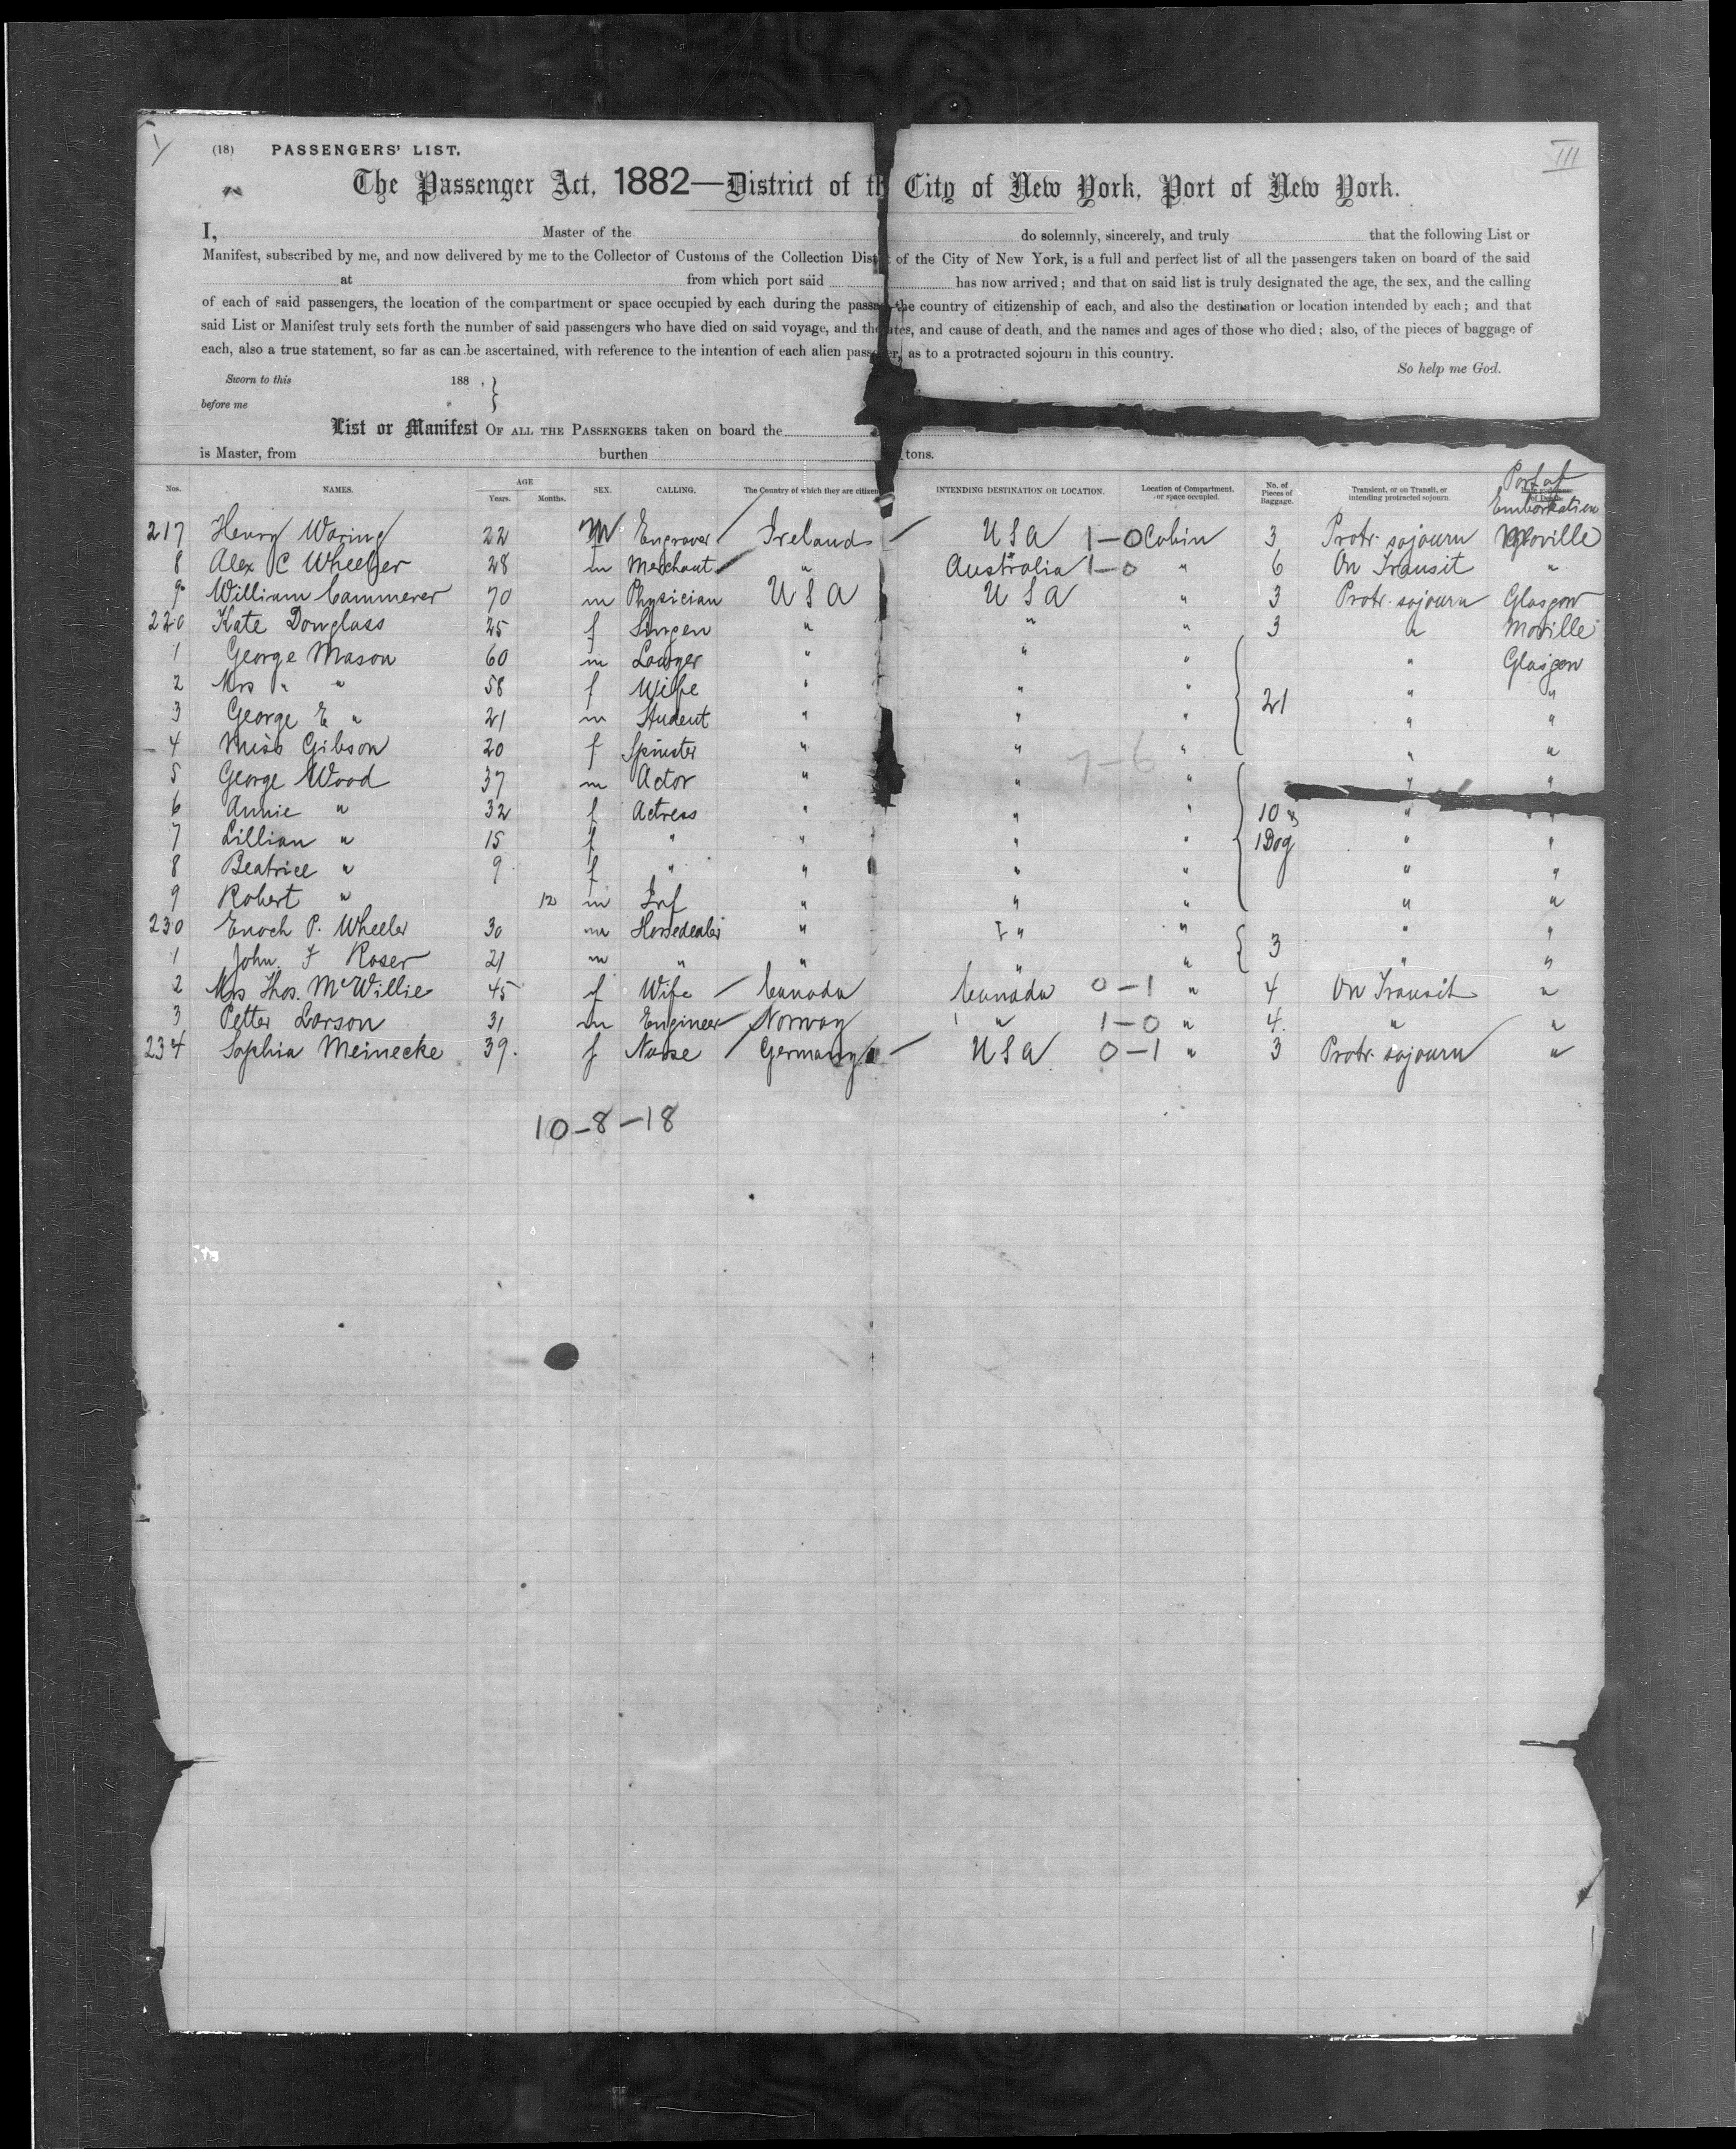 (18) PASSENGERS' LIST. III
The Passenger Act, 1882—District of th City of New York, Port of New York.
I, Master of the do solemnly, sincerely, and truly that the following List or
Manifest, subscribed by me, and now delivered by me to the Collector of Customs of the Collection Dist of the City of New York, is a full and perfect list of all the passengers taken on board of the said
at from which port said has now arrived; and that on said list is truly designated the age, the sex, and the calling
of each of said passengers, the location of the compartment or space occupied by each during the passa the country of citizenship of each, and also the destination or location intended by each; and that
said List or Manifest truly sets forth the number of said passengers who have died on said voyage, and the ates, and cause of death, and the names and ages of those who died; also, of the pieces of baggage of
each, also a true statement, so far as can be ascertained, with reference to the intention of each alien passe er, as to a protracted sojourn in this country.
So help me God.
Sworn to this 188 , }
before me
List or Manifest OF ALL THE PASSENGERS taken on board the
is Master, from burthen tons.
Nos. NAMES. AGE Years. Months. SEX. CALLING. The Country of which they are citizen INTENDING DESTINATION OR LOCATION. Location of Compartment, or space occupied. No. of Pieces of Baggage. Transient, or on Transit, or intending protracted sojourn. Port of Embarkation
217 Henry Waring 22 m Engraver Ireland USA 1-0 Cabin 3 Protr. sojourn Moville
8 Alex C Wheeler 28 m Merchant " Australia 1-0 " 6 On Transit "
9 William Cammerer 70 m Physician USA USA " 3 Protr. sojourn Glasgow
220 Kate Douglass 25 f " " " 3 " Moville
1 George Mason 60 m Lawyer " " " " Glasgow
2 Mrs " " 58 f Wife " " " 21 " "
3 George E " 21 m Student " " " " "
4 Miss Gibson 20 f Spinster " " 7-6 " " "
5 George Wood 37 m Actor " " " " "
6 Annie " 32 f Actress " " " 10 & " "
7 Lillian " 15 f " " " " 1 Dog " "
8 Beatrice " 9 f " " " " " "
9 Robert " 12 m Inf " " " " "
230 Enoch P. Wheeler 30 m Horsedealer " " " 3 " "
1 John F Roser 21 m " " " " " "
2 Mrs Thos. McWillie 45 f Wife Canada Canada 0-1 " 4 On Transit "
3 Petter Larson 31 m Engineer Norway " 1-0 " 4. " "
234 Sophia Meinecke 39. f Nurse Germany USA 0-1 " 3 Protr. sojourn "
10-8-18